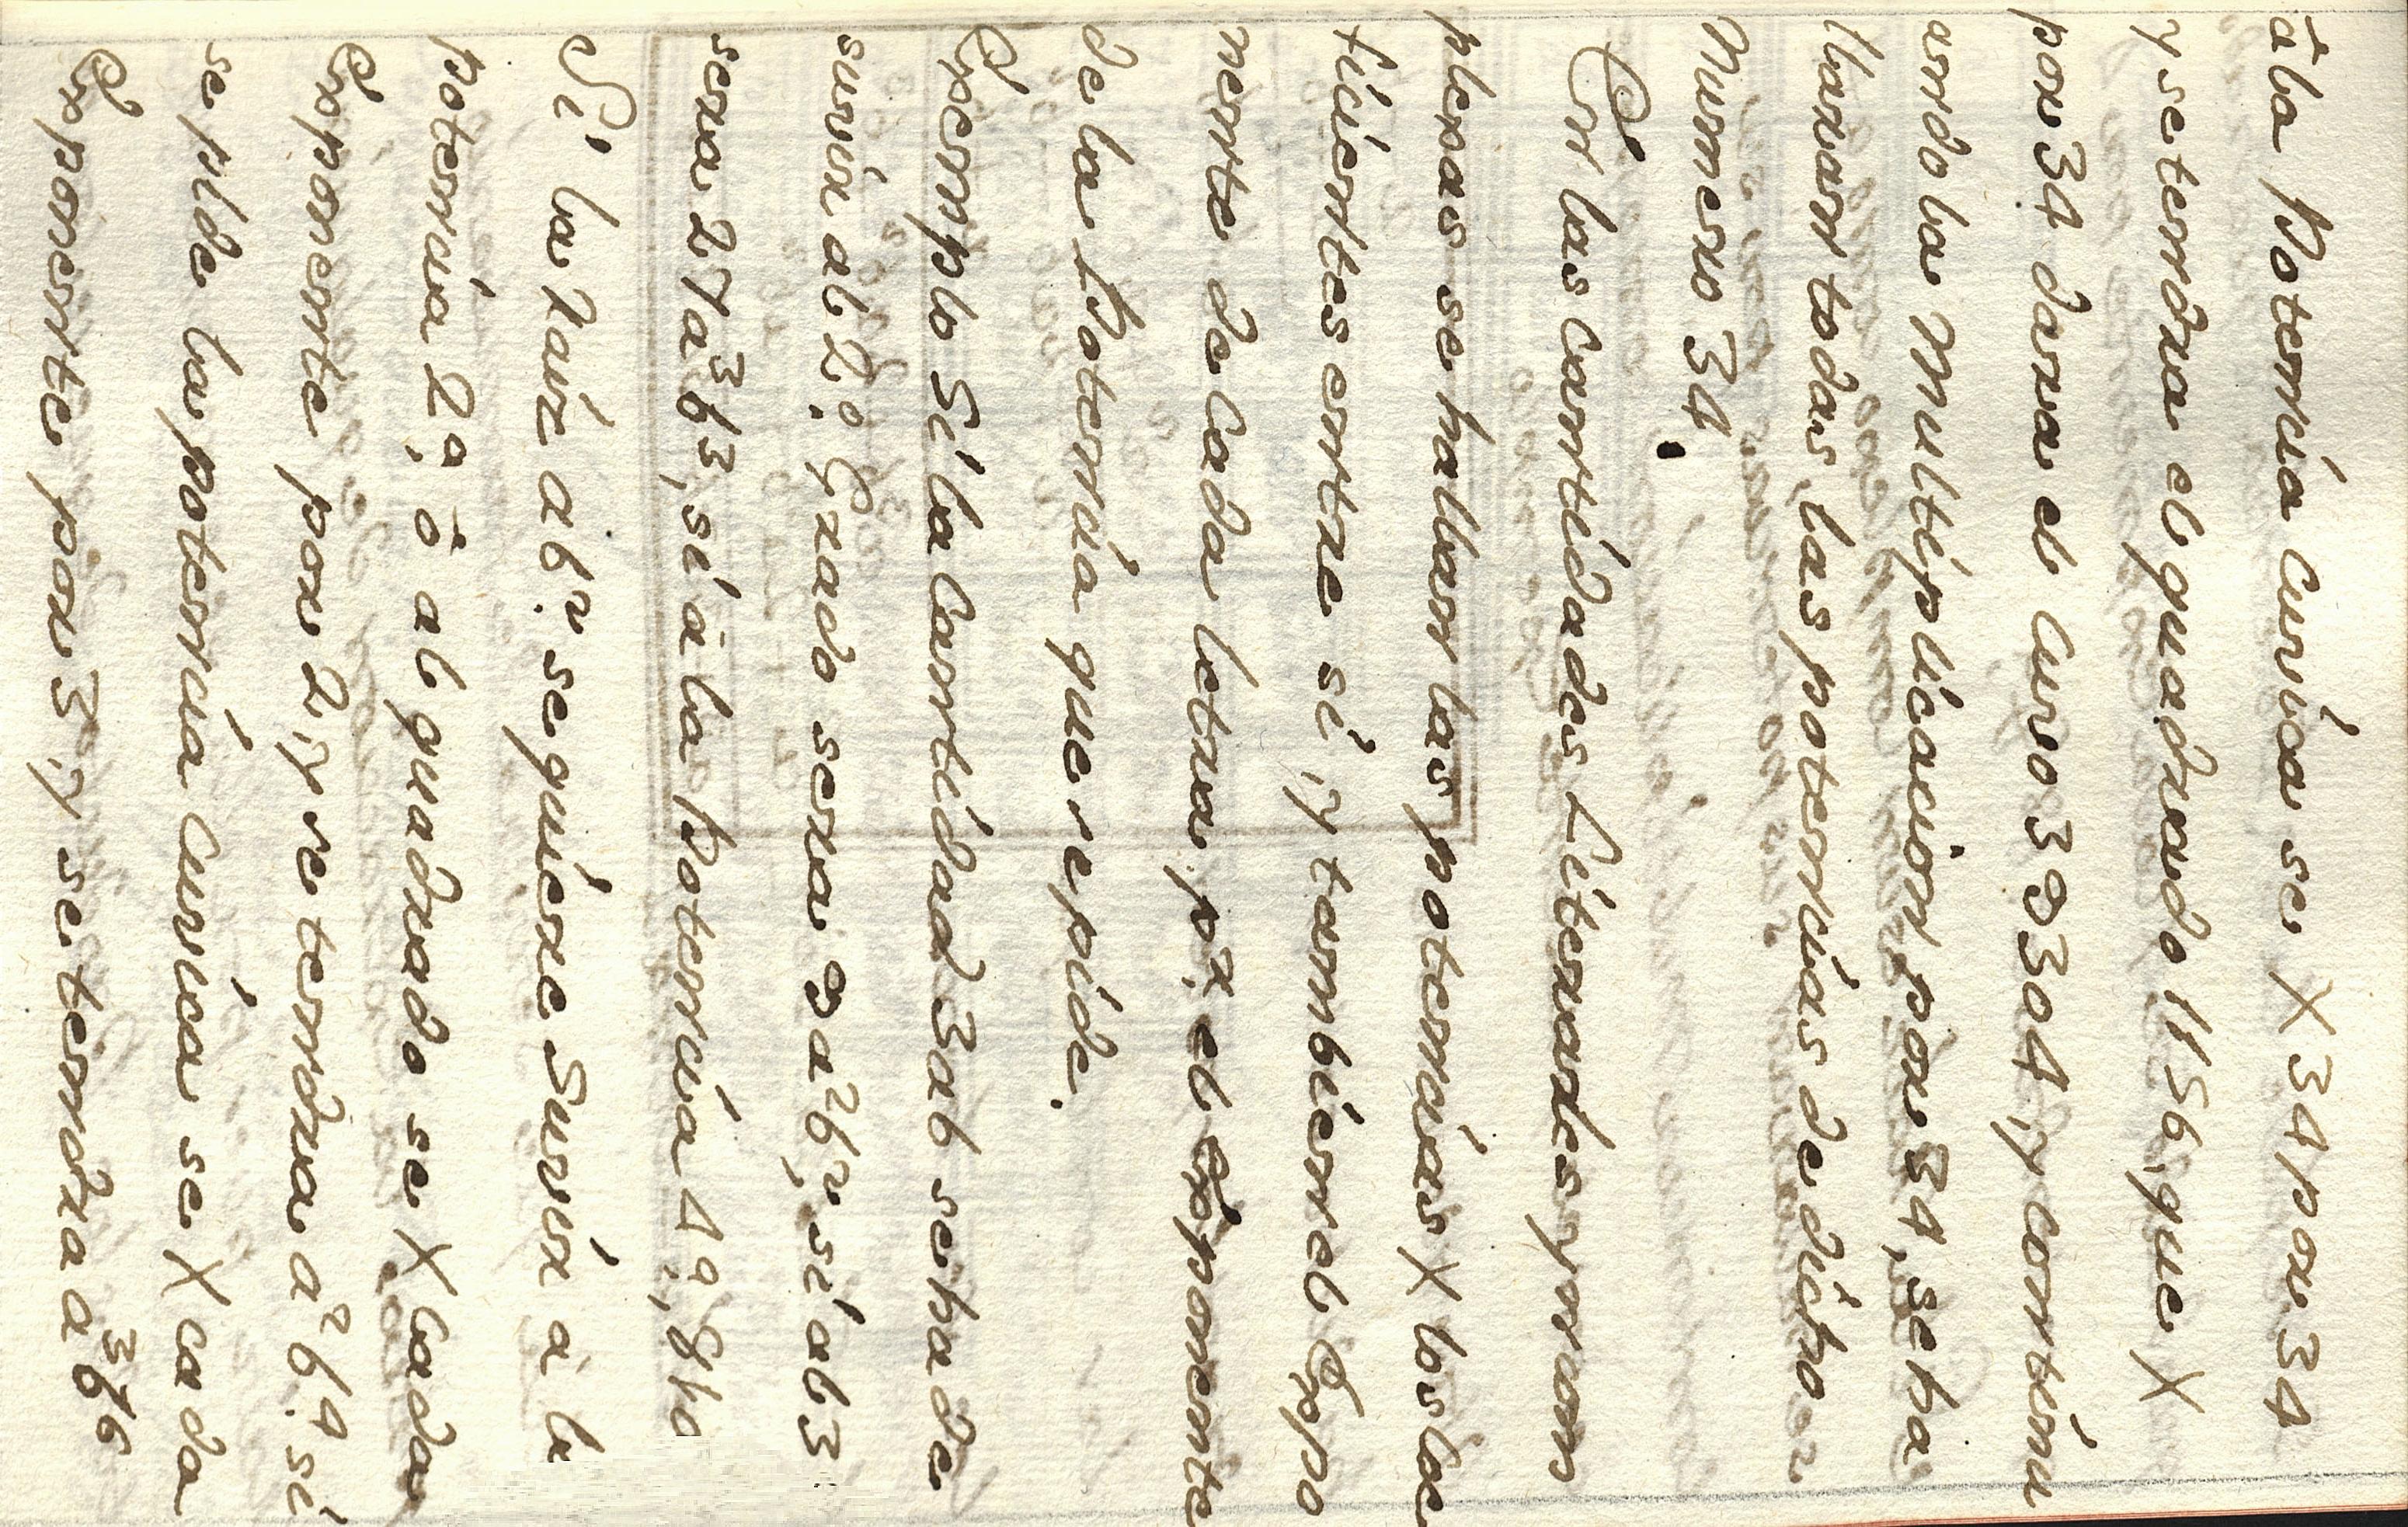 à la Potencia cuvica se X 34 por 34
y se tendra el quadrado 1156, que X
por 34 dara el cuvo 39304, y continu
ando la Multiplicacion por 34, se ha
llaran todas las potencias de dicho
Numero 34.
En las Cantidades Literales yncom
plexas se hallan las potencias X los coe
ficientes entre si, y tambien el Expo
nente de cada letra pr. el Exponente
de la Potencia que se pide.
Exemplo Si la Cantidad 3ab se ha de
suvir al 2.º Grado sera 9a²b², si al 3
sera 27a³b³, si à la Potencia 4ª, 81a
Si la raiz ab² se quiere Suvir a la
potencia 2ª, ò al quadrado se X cada
Exponente por 2, y se tendra a²b⁴. si
se pide la potencia cuvica se X cada
Exponente por 3, y se tendra a³b⁶